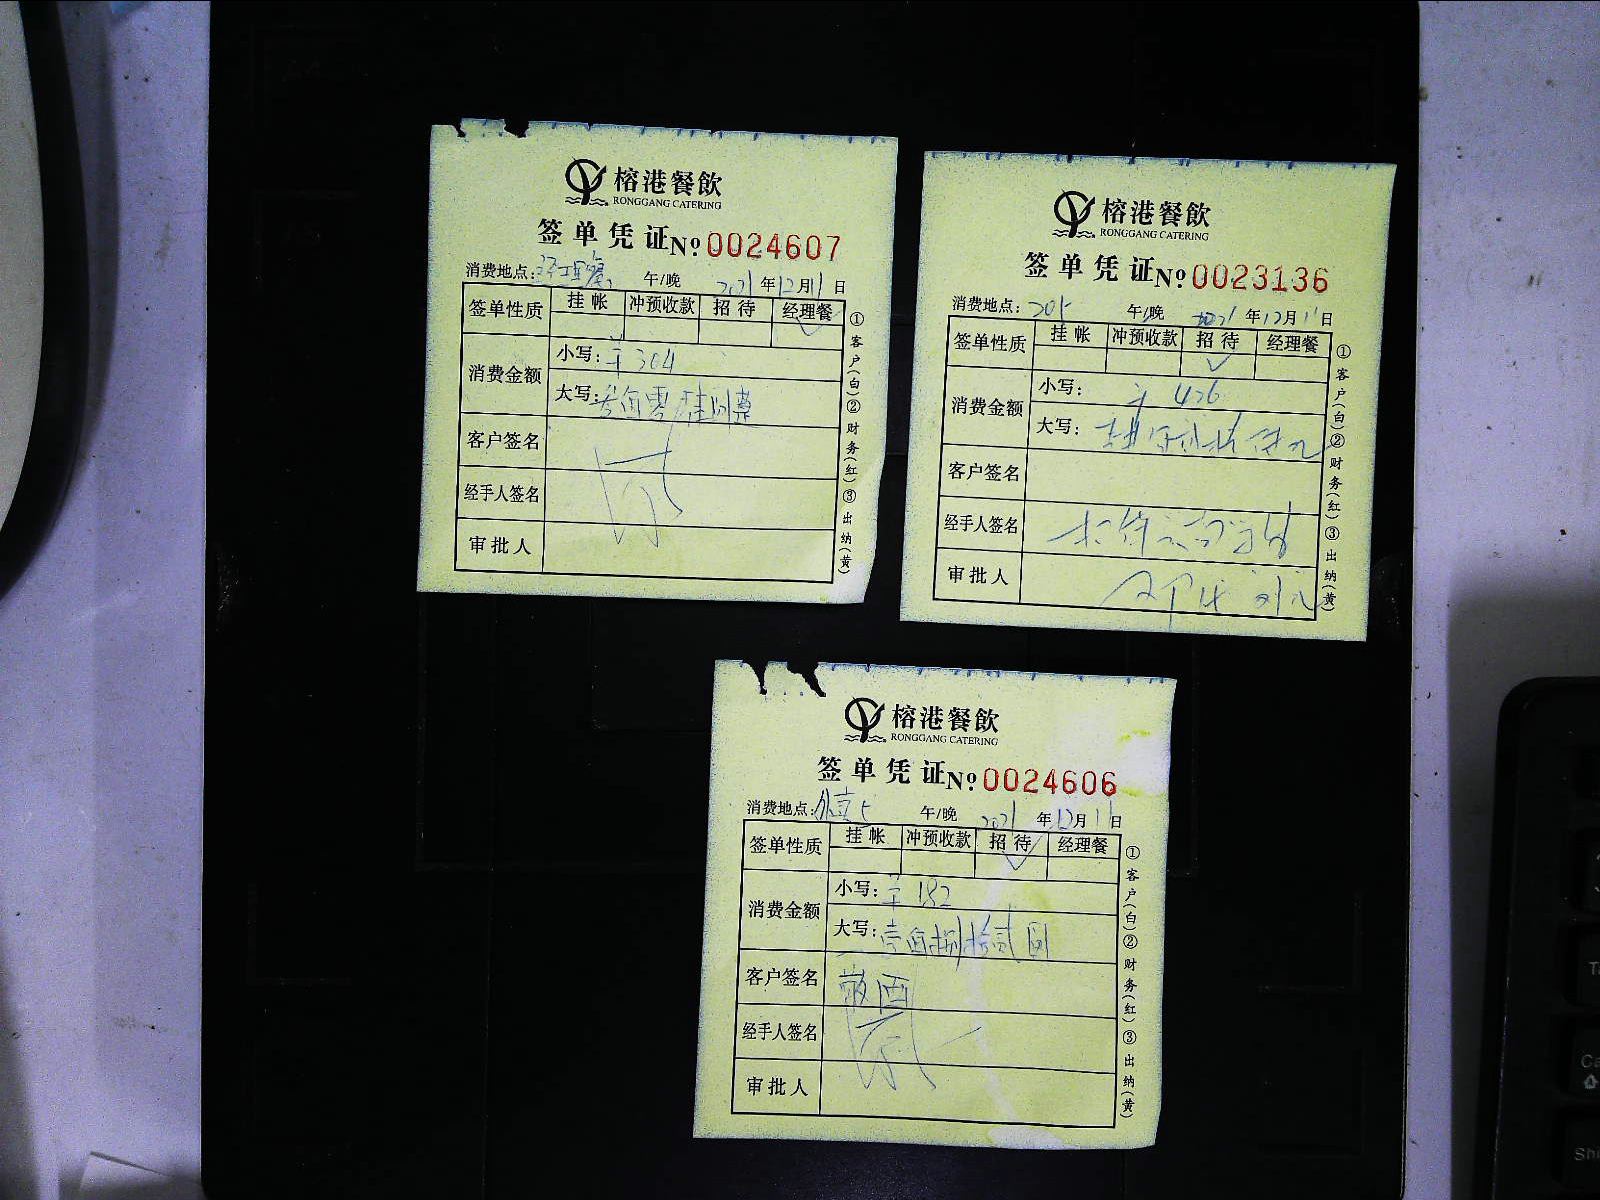 榕港餐飲
RONGGANG CATERING
签单凭证 No 0024607
消费地点: 午/晚 2021年12月11日
签单性质 挂帐 冲预收款 招待 经理餐
✓
消费金额 小写: 304
大写:
客户签名
经手人签名
审批人
①客户(白)②财务(红)③出纳(黄)
榕港餐飲
RONGGANG CATERING
签单凭证 No 0023136
消费地点: 205 午/晚 年12月11日
签单性质 挂帐 冲预收款 招待 经理餐
✓
消费金额 小写:
大写:
客户签名
经手人签名
审批人
①客户(白)②财务(红)③出纳(黄)
榕港餐飲
RONGGANG CATERING
签单凭证 No 0024606
消费地点: 午/晚 2021年12月11日
签单性质 挂帐 冲预收款 招待 经理餐
✓
消费金额 小写: 182
大写: 壹佰捌拾贰圆
客户签名 敬酒
经手人签名
审批人
①客户(白)②财务(红)③出纳(黄)